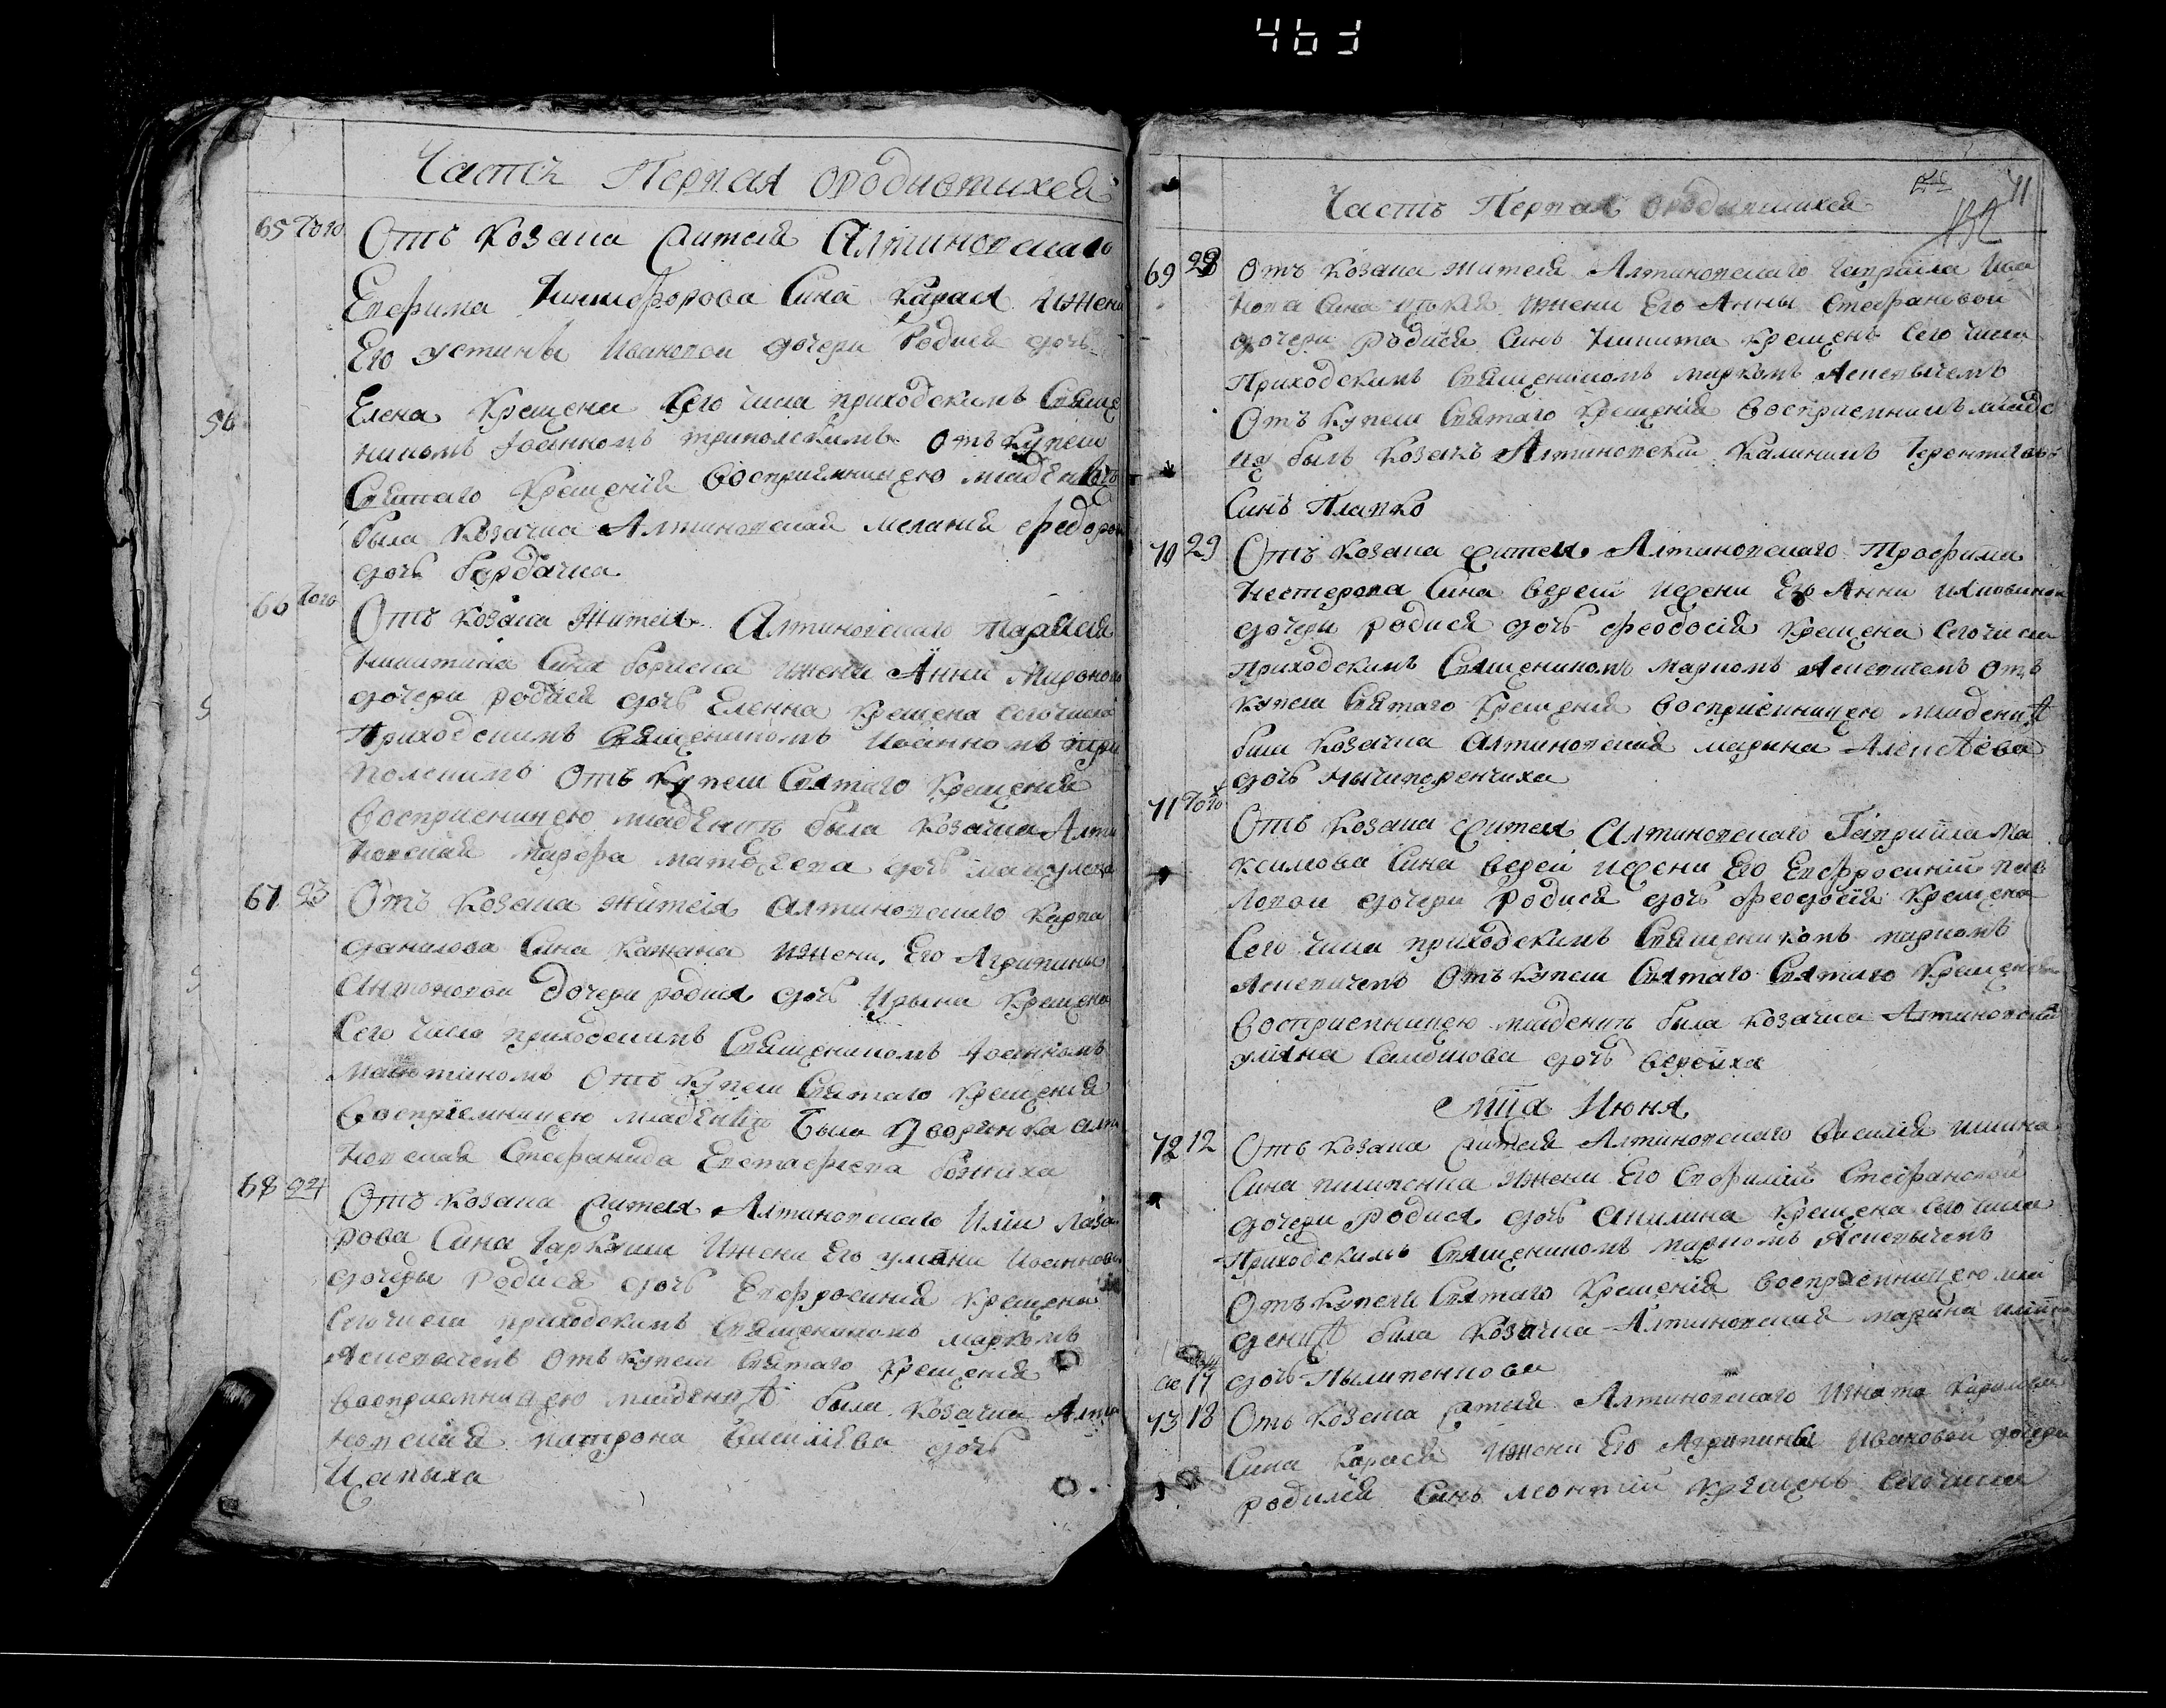 463
Часть Первая ородившихся
65 того Отъ козака жителя Алтиновского
Евфима Никифорова сина Карася и жени
Его Устины Ивановой дочери родися дочь
Елена крещена сего числа приходскимъ Свяще
никомъ Іоанномъ Триполскимъ Отъ купели
Святаго крещенія восприемницею младенцу
была козачка Алтиновская Меланія Федоро
дочь
66 того Отъ козака жителя Алтиновского Тарасія
Никитина сина Бориска и жени Анни Миронов
дочери родися дочь Еленна крещена сего числа
Приходскимъ Священикомъ Иоанномъ Три
полскимъ Отъ купели Святаго крещенія
восприемницею младенцу была козачка Алти
новская Марфа Матвеева дочь
67 23 Отъ козака жителя Алтиновского Карпа
Данилова сина Кажана и жени Его Агрипины
Антоновой дочери родися дочь Ирына крещена
Сего числа приходскимъ Священикомъ Іоанномъ
Отъ купели Святаго крещенія
восприемницею младенцу была дворянка Алти
новская Стефанида Евстафиева Божниха
68 24 Отъ козака жителя Алтиновского Иліи Лаза
рова сина и жени Его Уляни Иоаннов
дочеры родися дочь Евфросиния крещена
Сего числа приходскимъ Священикомъ Маркомъ
Ясневичемъ Отъ купели Святаго крещенія
восприемницею младенцу была козачка Алти
новская Матрона Василіева дочь
Цапыха
Часть Первая ородывшихся
71
69 28 Отъ козака жителя Алтиновского Гавріила Ива
нова сина и жени Его Анны Стефановой
дочери родися синъ Никита крещенъ сего числа
Приходскимъ Священикомъ Маркомъ Ясневычемъ
Отъ купели Святаго крещенія восприемникъ младе
цу былъ козакъ Алтиновскій Калиникъ Терентиевъ
синъ Плавко
70 29 Отъ козака жителя Алтиновского Трофима
Нестерова сина Верей и жени Его Анни Иляновиной
дочери родися дочь Феодосія крещена сего числа
приходскимъ Священикомъ Маркомъ Ясневичемъ Отъ
купели Святаго крещенія восприемницею младенцу
была козачка Алтиновская Марина Алексеева
дочь Нычипоренчиха
71 того Отъ козака жителя Алтиновского Гавриила Ма
ксимова сина Верей и жени Его Евфросиній Пав
ловой дочери родися дочь Феодосія крещена
Сего числа приходскимъ Священикомъ Маркомъ
Ясневичемъ Отъ купели Святаго Святаго крещенія
восприемницею младенцу была козачка Алтиновская
Уліяна Самойлова дочь Верейха
Мца Июня
72 12 Отъ козака жителя Алтиновского Василія
Сина Пилипенка и жени Его Евфимій Стефановой
дочери родися дочь Акилина крещена сего числа
Приходскимъ Священикомъ Маркомъ Ясневычемъ
Отъ купели Святаго крещенія восприемницею мла
денцу была козачка Алтиновская Марина
дочь Пылипенкова
73 18 Отъ козака жителя Алтиновского Игната Кирилова
Сина Карася и жени Его Агрипины Ивановой дочери
родился синъ Леонтий крещенъ сего числа